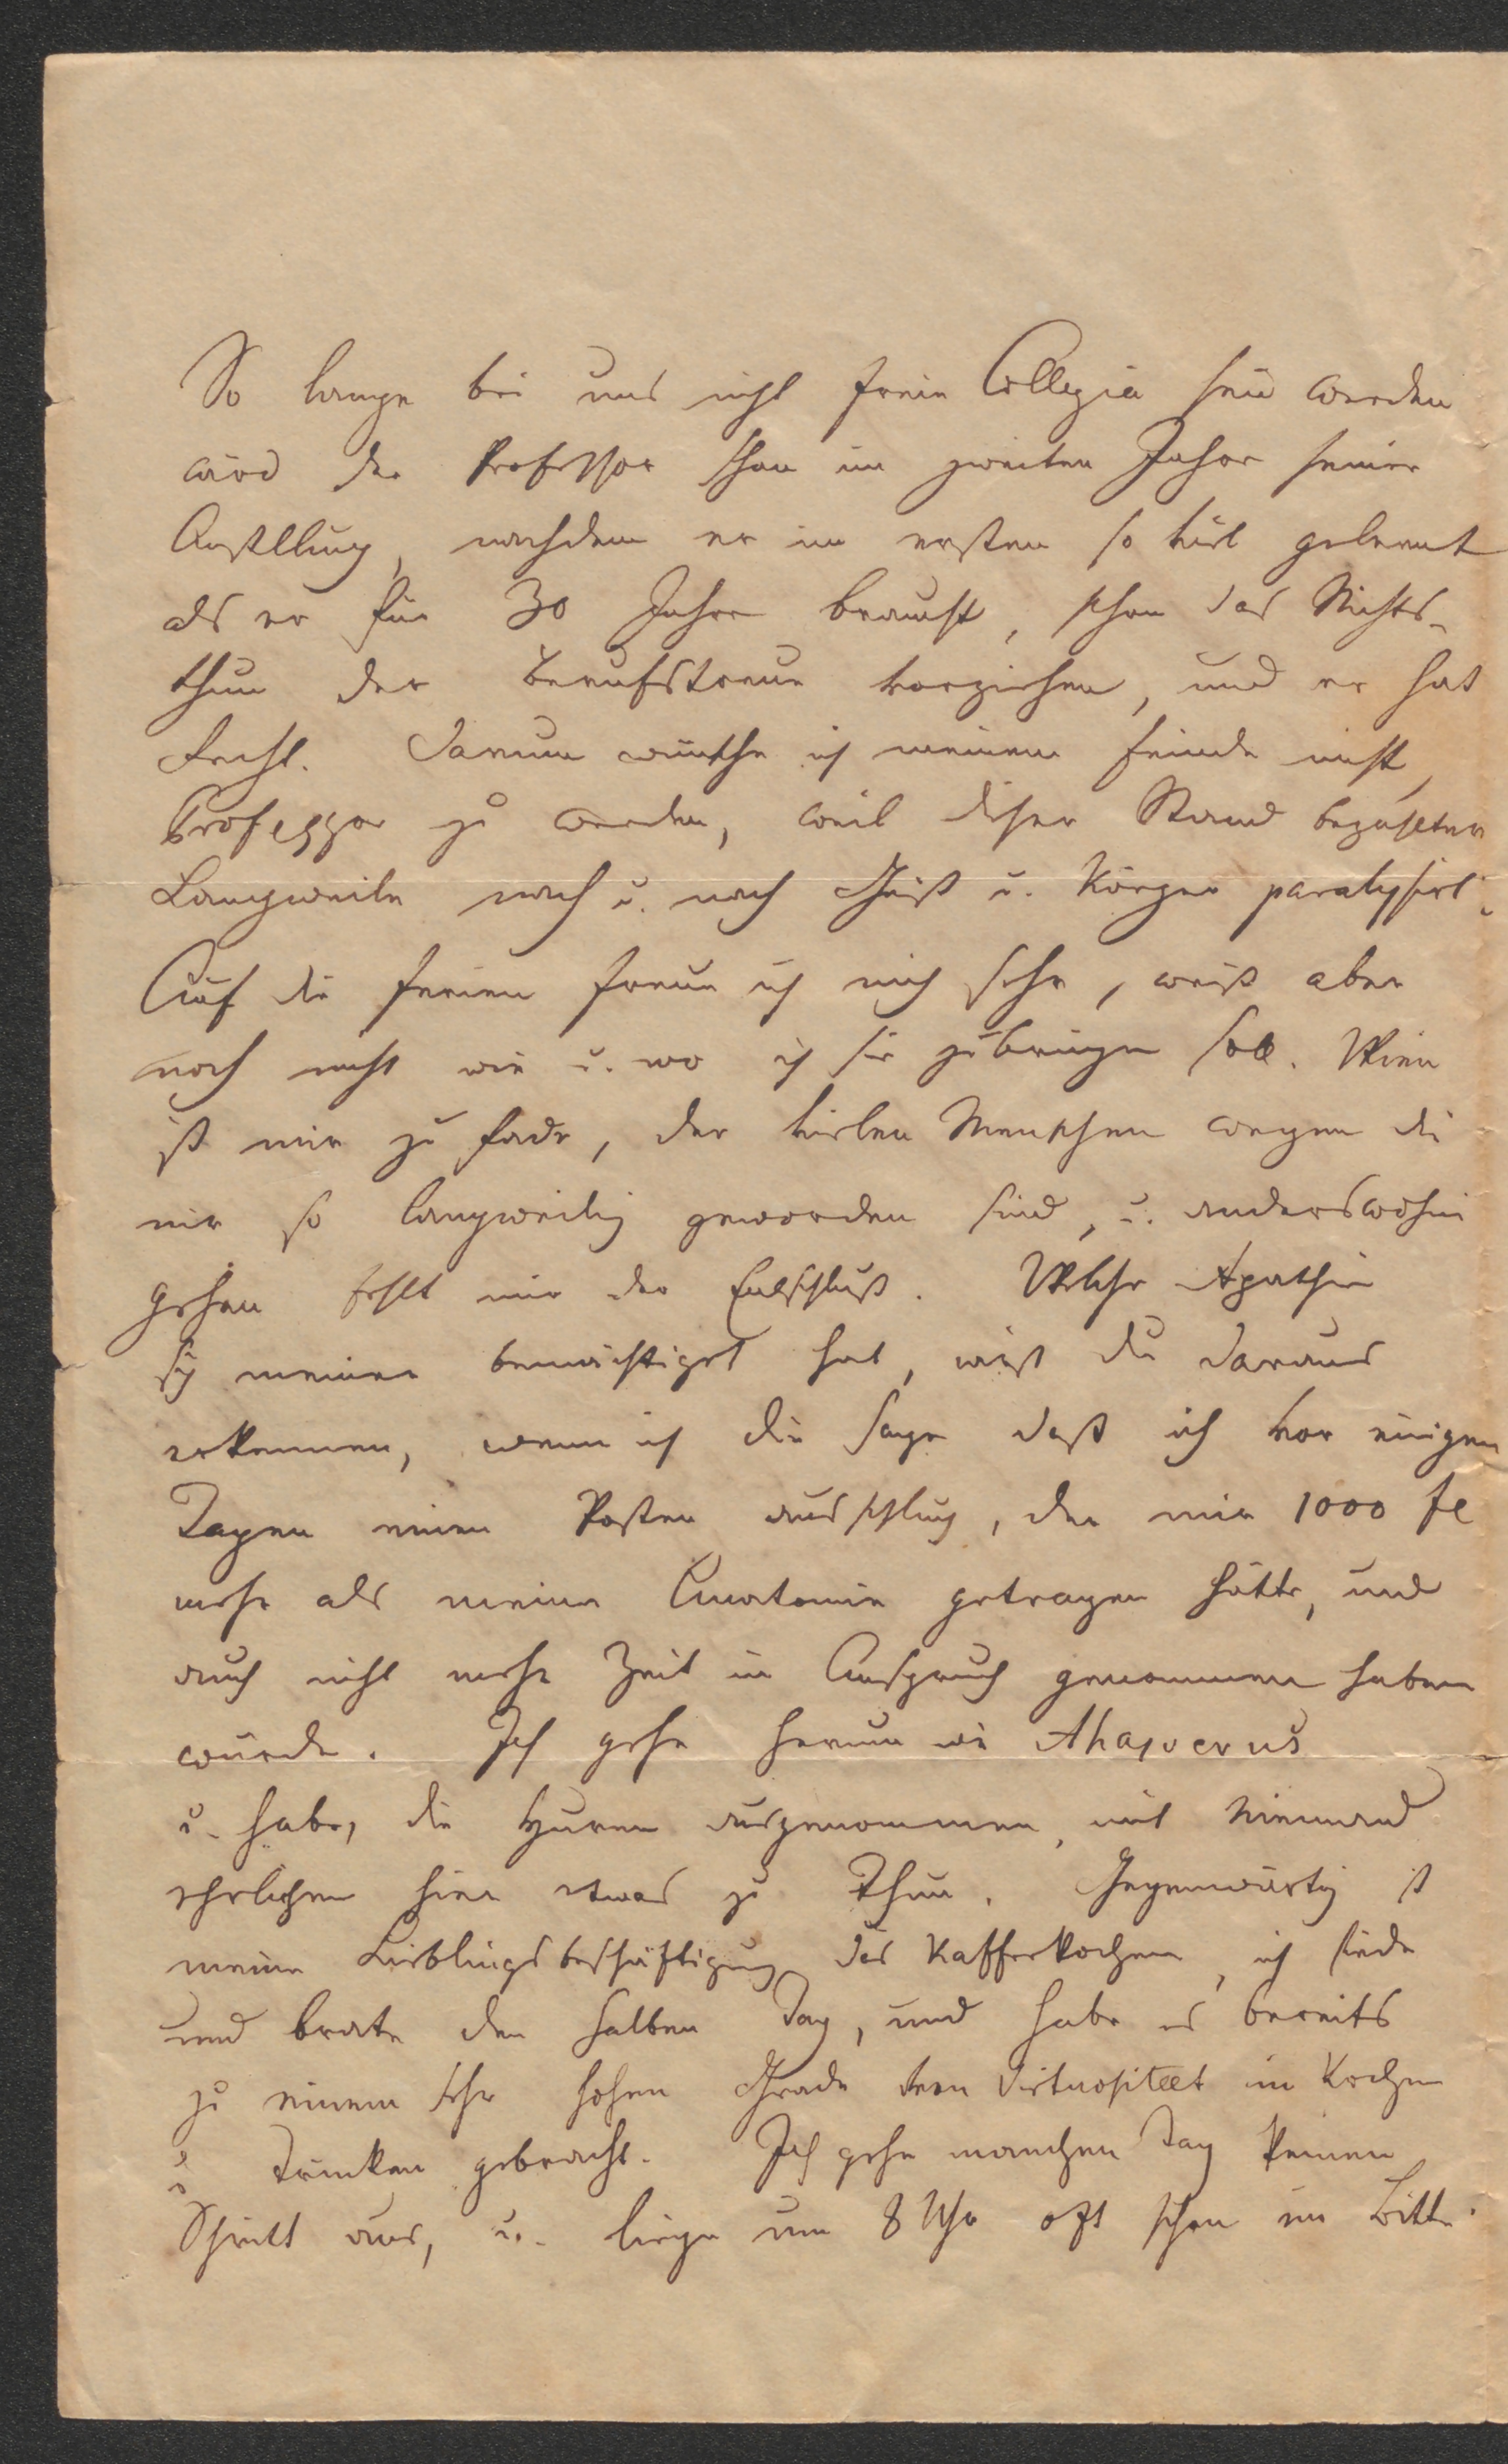 So lange bei uns nicht freie Collegia sein werden
wird der Professor schon im zweiten Jahre seiner
Anstellung, nachdem er im ersten so viel gelernt
als er für 30 Jahre braucht, schon das Nichts-
thun der Berufstreue vorziehen, und er hat
recht. Darum wünsche ich meinem Feinde nicht,
Professor zu werden, weil dieser Stand bezahlter
Langweile nach u. nach Geist u. Körper paralysirt.
Auf die Ferien freue ich mich sehr, weiß aber
noch nicht wie u. wo ich sie zubringen soll. Wien
ist mir zu fade, der vielen Menschen wegen die
mir so langweilig geworden sind, u. anderswohin
gehen fehlt mir der Entschluß. Welche Apathie
sich meiner bemächtiget hat, wirst du daraus
erkennen, wenn ich dir sage daß ich vor einigen
Tagen einen Posten ausschlug, der mir 1000 fl
mehr als meine Anatomie getragen hätte, und
auch nicht mehr Zeit in Anspruch genommen haben
würde. Ich gehe herum wie Ahasverus
u. habe, die Huren ausgenommen, mit Niemand
ehrlichen hier etwas zu Thun. Gegenwärtig ist
meine Lieblingsbeschäftigung das Kaffeekochen, ich siede
und brate den halben Tag, und habe es bereits
zu einem sehr hohen Grade von Virtuositæt im Kochen
u Trinken gebracht. Ich gehe manchen Tag keinen
Schritt aus, u. liege um 8 Uhr oft schon im Bette.